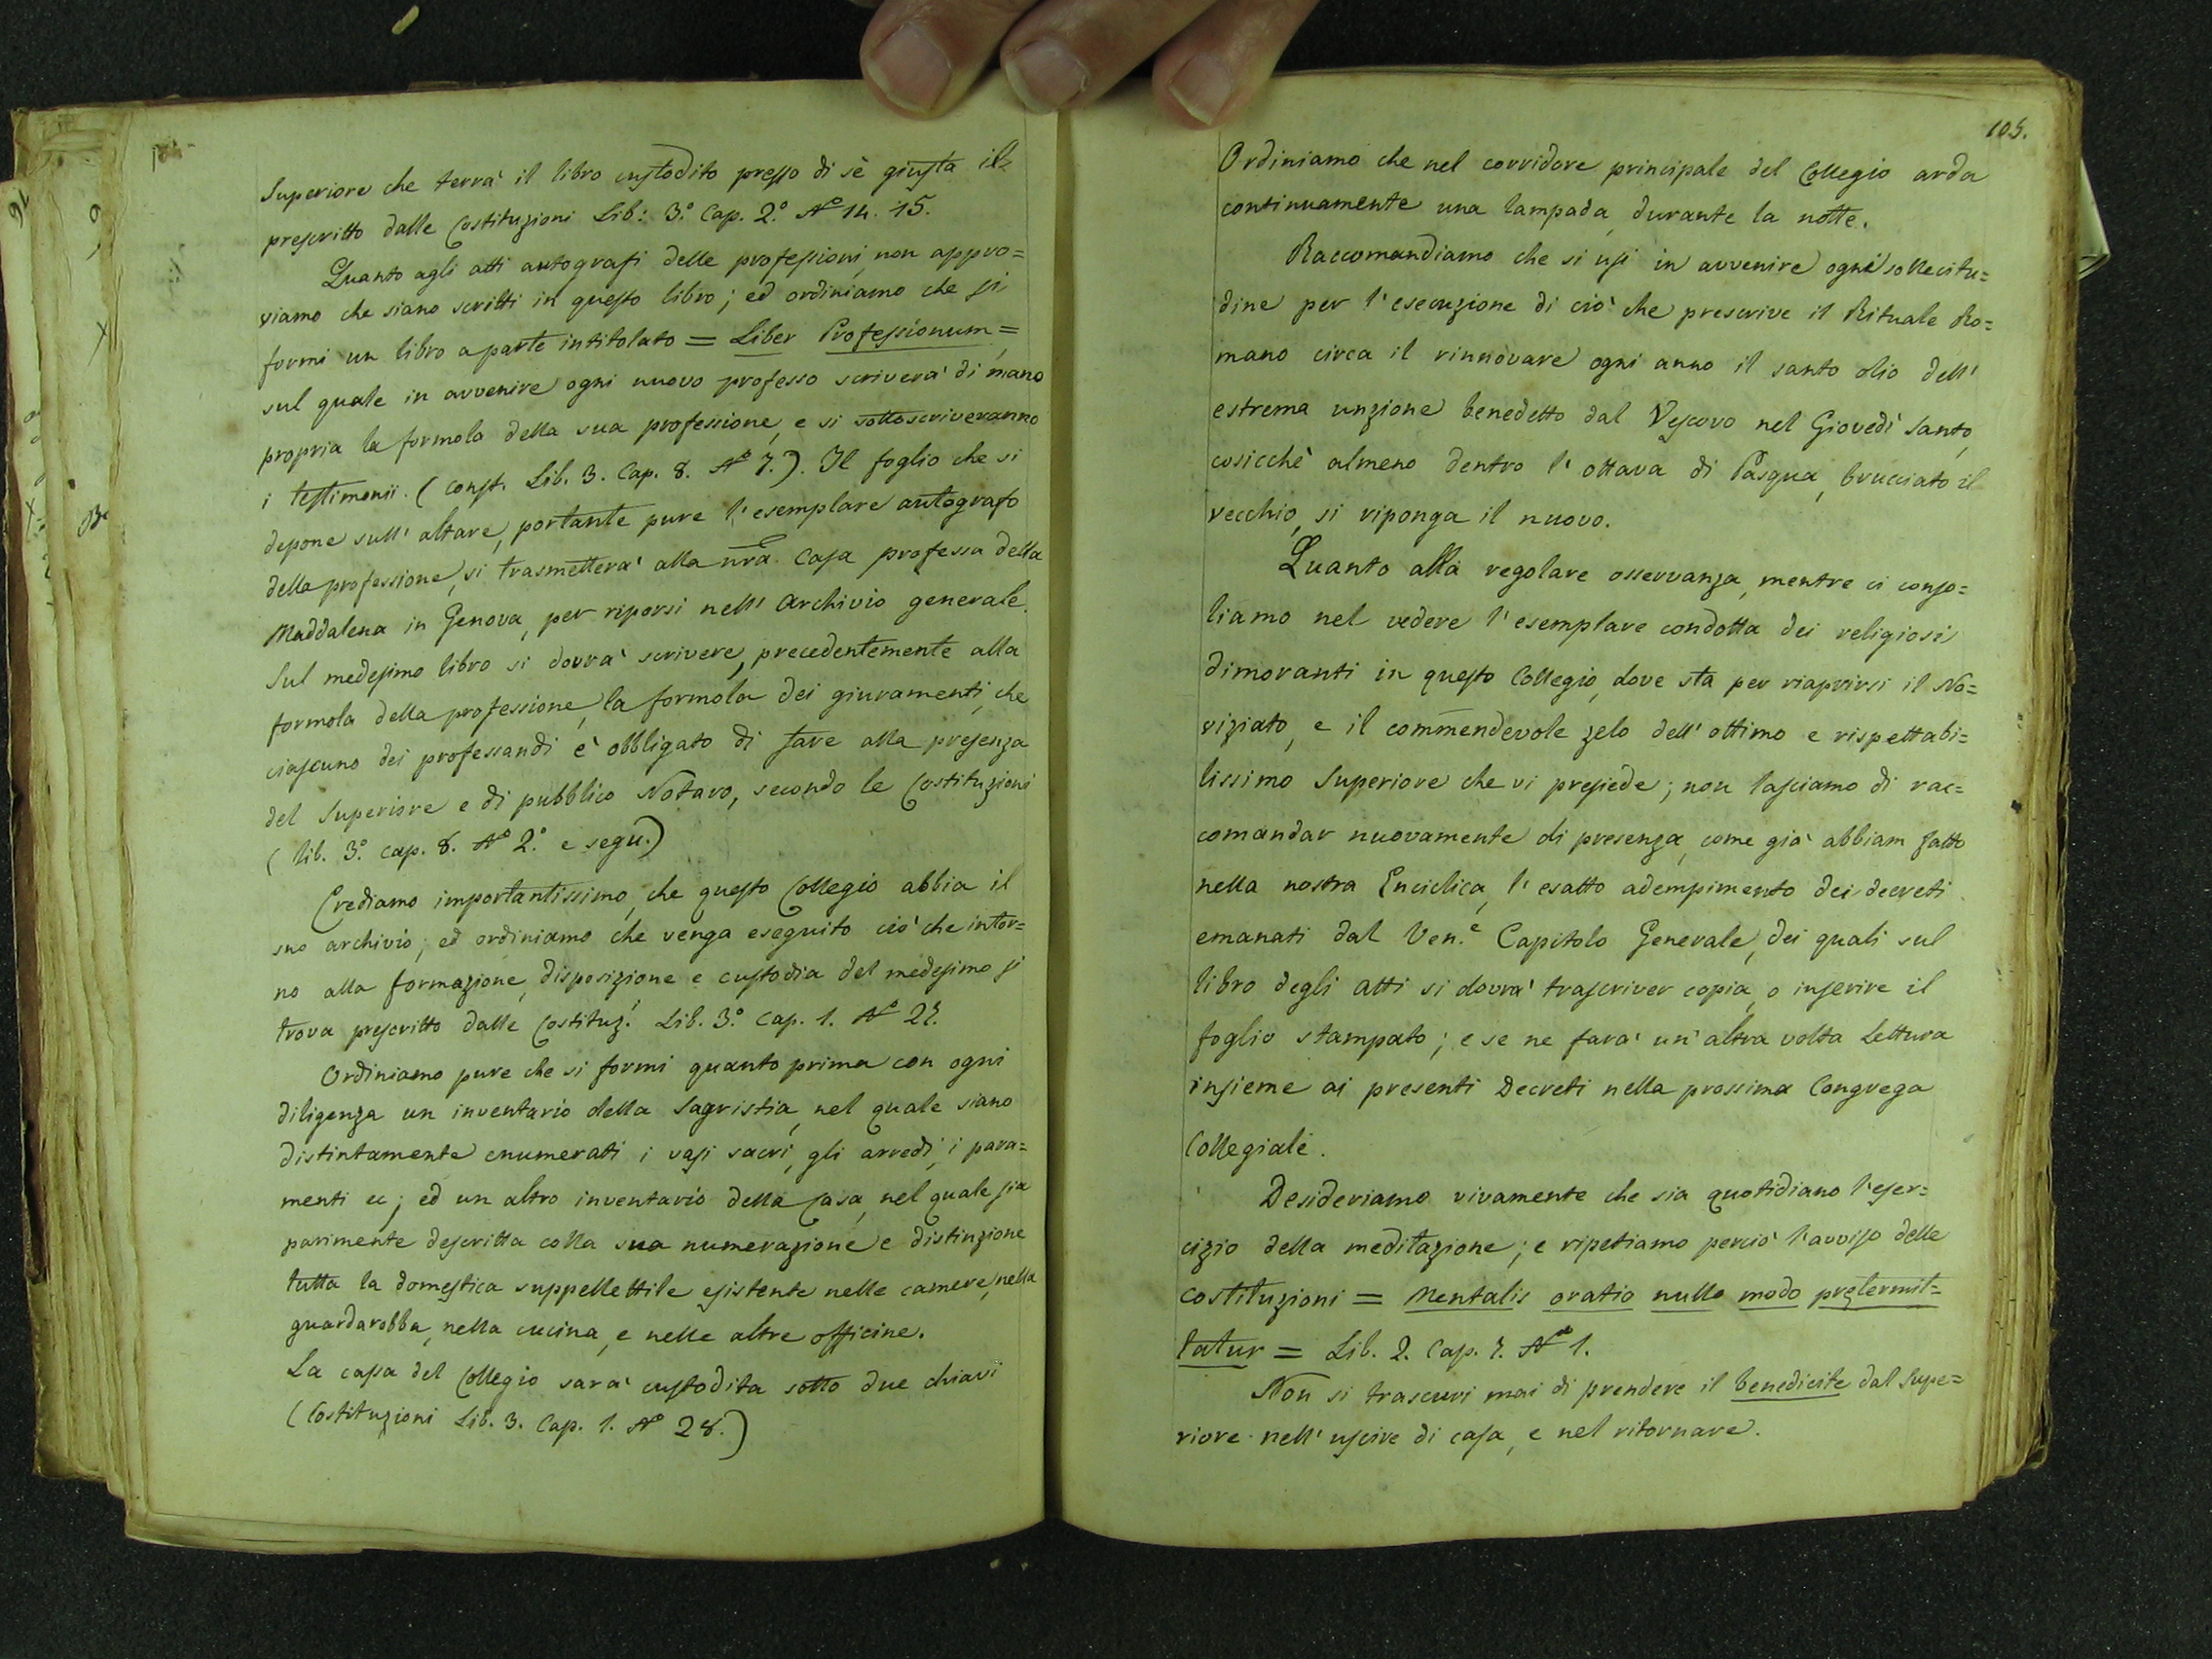 104.
Superiore che terrà il libro custodito presso di sè giusta il
prescritto dalle Costituzioni Lib: 3.º Cap. 2.º Nº 14. 15.
Quanto agli atti autografi delle professioni, non appro=
viamo che siano scritti in questo libro; ed ordiniamo che si
formi un libro a parte intitolato = Liber Professionum =
sul quale in avvenire ogni nuovo professo scriverà di mano
propria la formola della sua professione, e si sottoscriveranno
i testimonii. (Const. Lib. 3. Cap. 8. Nº 7.). Il foglio che si
depone sull' altare, portante pure l' esemplare autografo
della professione, si trasmetterà alla nra. Casa professa della
Maddalena in Genova, per riporsi nell' Archivio generale.
Sul medesimo libro si dovrà scrivere, precedentemente alla
formola della professione, la formola dei giuramenti, che
ciascuno dei professandi è obbligato di fare alla presenza
del Superiore e di pubblico Notaro, secondo le Costituzioni
(lib. 3.º cap. 8. Nº 2.º e segu.)
Crediamo importantissimo, che questo Collegio abbia il
suo archivio; ed ordiniamo che venga eseguito ciò che intor=
no alla formazione, disposizione e custodia del medesimo si
trova prescritto dalle Costituz.i Lib. 3.º Cap. 1. Nº 27.
Ordiniamo pure che si formi quanto prima con ogni
diligenza un inventario della Sagristia, nel quale siano
distintamente enumerati i vasi sacri, gli arredi, i para=
menti ec; ed un altro inventario della Casa, nel quale sia
parimente descritta colla sua numerazione e distinzione
tutta la domestica suppellettile esistente nelle camere, nella
guardarobba, nella cucina, e nelle altre officine.
La cassa del Collegio sarà custodita sotto due chiavi
(Costituzioni Lib. 3. Cap. 1. Nº 28.)
105.
Ordiniamo che nel corridore principale del Collegio arda
continuamente una lampada, durante la notte.
Raccomandiamo che si usi in avvenire ogni sollecitu=
dine per l' esecuzione di ciò che prescrive il Rituale Ro=
mano circa il rinnovare ogni anno il santo olio dell'
estrema unzione benedetto dal Vescovo nel Giovedì Santo,
cosicchè almeno dentro l' ottava di Pasqua, brucciato il
vecchio, si riponga il nuovo.
Quanto alla regolare osservanza, mentre ci conso=
liamo nel vedere l' esemplare condotta dei religiosi
dimoranti in questo Collegio, dove sta per riaprirsi il No=
viziato, e il commendevole zelo dell' ottimo e rispettabi=
lissimo Superiore che vi presiede; non lasciamo di rac=
comandar nuovamente di presenza, come già abbiam fatto
nella nostra Enciclica, l' esatto adempimento dei decreti
emanati dal Ven.e Capitolo Generale, dei quali sul
libro degli atti si dovrà trascriver copia, o inserire il
foglio stampato; e se ne farà un' altra volta Lettura
insieme ai presenti Decreti nella prossima Congrega
Collegiale.
Desideriamo vivamente che sia quotidiano l' eser=
cizio della meditazione; e ripetiamo perciò l' avviso delle
costituzioni = Mentalis oratio nullo modo prętermit=
tatur = Lib. 2. Cap. 7. Nº 1.
Non si trascuri mai di prendere il benedicite dal Supe=
riore nell' uscire di casa, e nel ritornare.